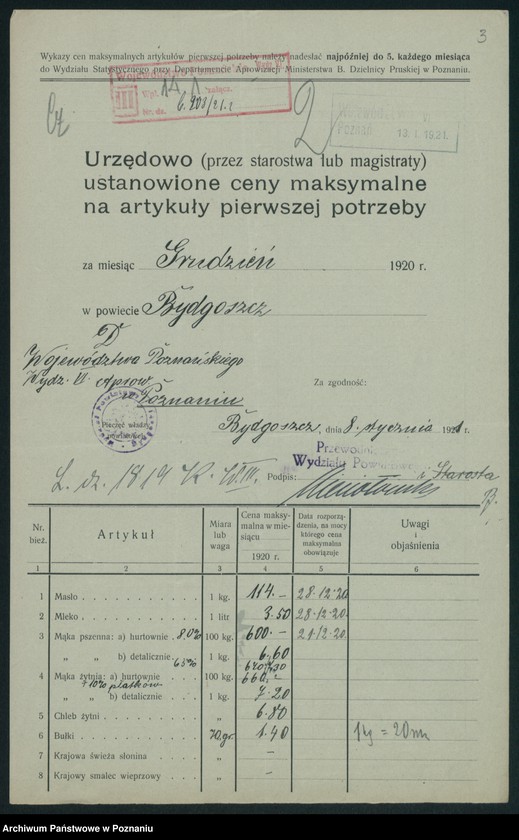 3
Wykazy cen maksymalnych artykułów pierwszej potrzeby należy nadesłać najpóźniej do 5. każdego miesiąca
do Wydziału Statystycznego przy Departamencie Aprowizacji Ministerstwa B. Dzielnicy Pruskiej w Poznaniu.
III
6.908/21.
2
POZNAŃ 13. I. 1921.
Urzędowo (przez starostwa lub magistraty)
ustanowione ceny maksymalne
na artykuły pierwszej potrzeby
za miesiąc Grudzień 1920 r.
w powiecie Bydgoszcz
D
Województwa Poznańskiego
Wydz. VI Aprow.
Poznaniu
Za zgodność:
Pieczęć władzy
Bydgoszcz, dnia 8. stycznia 1921 r.
Wydziału
L. dz. 1819
Podpis: i Starosta
Nr. bież.
Artykuł
Miara lub waga
Cena maksymalna w miesiącu 1920 r.
Data rozporządzenia, na mocy którego cena maksymalna obowiązuje
Uwagi i objaśnienia
1 2 3 4 5 6
1 Masło 1 kg. 114.- 28.12.20
2 Mleko 1 litr 3.50 28.12.20
3 Mąka pszenna: a) hurtownie 80% 100 kg. 600.- 21.12.20
„ „ b) detalicznie 1 kg. 6.60
65%
4 Mąka żytnia: a) hurtownie 100 kg. 660.-
+ 10% płatków
„ „ b) detalicznie 1 kg. 7.20
5 Chleb żytni „ 6.80
6 Bułki 70 gr. 1.40
7 Krajowa świeża słonina „ -
8 Krajowy smalec wieprzowy „ -
Archiwum Państwowe w Poznaniu